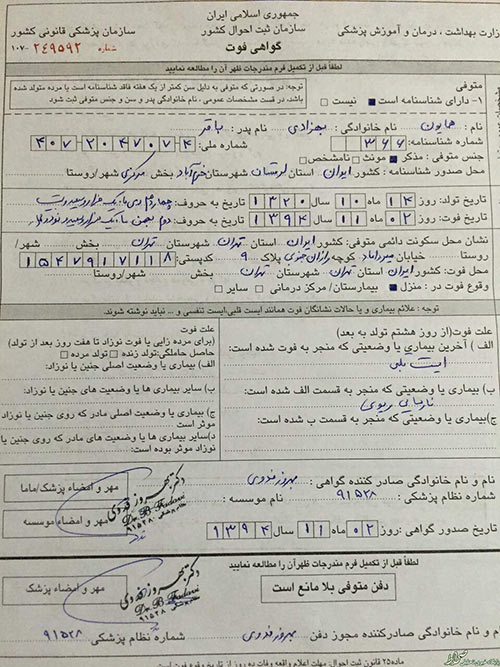 جمهوری اسلامی ایران
وزارت بهداشت، درمان و آموزش پزشکی
سازمان ثبت احوال کشور
سازمان پزشکی قانونی کشور
گواهی فوت
شماره ۲۴۹۵۹۲ -۱۰۷
لطفاً قبل از تکمیل فرم مندرجات ظهر آن را مطالعه نمایید
متوفی
۱- دارای شناسنامه است نیست
توجه: در صورتی که متوفی به دلیل سن کمتر از یک هفته فاقد شناسنامه است یا مرده متولد شده باشد، در قسمت مشخصات عمومی، نام خانوادگی پدر و سن و جنس متوفی ثبت شود.
نام: همایون نام خانوادگی: بهزادی نام پدر: باقر
شماره شناسنامه: ۳۶۶ شماره ملی: ۴۰۷۲۰۴۷۰۷۴
جنس متوفی: مذکر مونث نامشخص
محل صدور شناسنامه: کشور ایران استان لرستان شهرستان خرم‌آباد بخش مرکزی شهر/روستا
تاریخ تولد: روز ۱۴ ماه ۱۰ سال ۱۳۲۰ تاریخ به حروف: چهاردهم دی ماه یک هزار و سیصد و بیست
تاریخ فوت: روز ۰۲ ماه ۱۱ سال ۱۳۹۴ تاریخ به حروف: دوم بهمن ماه یک هزار و سیصد و نود و
نشان محل سکونت دائمی متوفی: کشور ایران استان تهران شهرستان تهران بخش شهر/
روستا خیابان میرداماد کوچه رازان جنوبی پلاک ۹ کدپستی: ۱۵۴۷۹۱۷۱۱۸
محل فوت: کشور ایران استان تهران شهرستان تهران بخش شهر/روستا
وقوع فوت در: منزل بیمارستان/مرکز درمانی سایر
توجه: علائم بیماری و یا حالات نشانگان فوت همانند ایست قلبی،ایست تنفسی و ... نباید نوشته شوند.
علت فوت(از روز هشتم تولد به بعد)
الف) آخرین بیماری یا وضعیتی که منجر به فوت شده است:
ایست قلبی
ب) بیماری یا وضعیتی که منجر به قسمت الف شده است:
نارسایی ریوی
ج) بیماری یا وضعیتی که منجر به قسمت ب شده است:
علت فوت
(برای مرده زایی یا فوت نوزاد تا هفت روز بعد از تولد)
حاصل حاملگی: تولد زنده تولد مرده
الف) بیماری یا وضعیت اصلی جنین یا نوزاد:
ب) سایر بیماری ها یا وضعیت های جنین یا نوزاد:
ج) بیماری یا وضعیت اصلی مادر که روی جنین یا نوزاد موثر است
د) سایر بیماری ها یا وضعیت های مادر که روی جنین یا نوزاد موثر بوده است:
نام و نام خانوادگی پزشک صادر کننده گواهی: بهروز فدوی
مهر و امضاء پزشک/ماما
شماره نظام پزشکی: ۹۱۵۲۸ نام موسسه:
مهر و امضاء موسسه
دکتر بهروز فدوی
Dr. B. Fadavi
تاریخ صدور گواهی: روز ۰۲ ماه ۱۱ سال ۱۳۹۴
لطفاً قبل از تکمیل فرم مندرجات ظهر آن را مطالعه نمایید
دفن متوفی بلا مانع است
مهر و امضاء پزشک
دکتر بهروز فدوی
Dr. B. Fadavi
نام و نام خانوادگی صادرکننده مجوز دفن بهروز فدوی شماره نظام پزشکی: ۹۱۵۲۸
ماده۲۵ قانون ثبت احوال، مهلت اعلام واقعه وفات ده روز از تاریخ وقوع فوت است